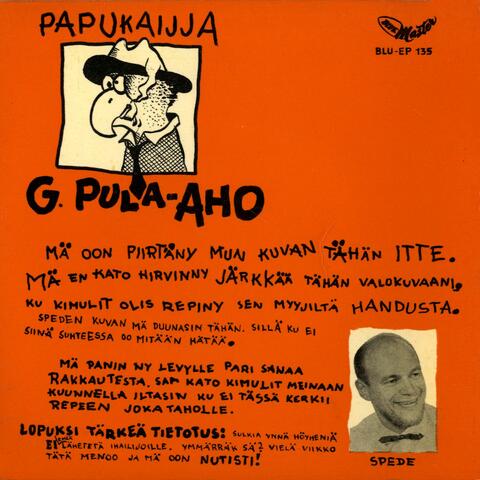 PAPUKAIJJA
Blue Master
BLU-EP 135
G. PULA-AHO
MÄ OON PIIRTÄNY MUN KUVAN TÄHÄN ITTE.
MÄ EN KATO HIRVINNY JÄRKKÄÄ TÄHÄN VALOKUVAANI,
KU KIMULIT OLIS REPINY SEN MYYJILTÄ HANDUSTA.
SPEDEN KUVAN MÄ DUUNASIN TÄHÄN. SILLÄ KU EI
SIINÄ SUHTEESSA OO MITÄÄN HÄTÄÄ.
MÄ PANIN NY LEVYLLE PARI SANAA
RAKKAUTESTA, SAM KATO KIMULIT MEINAAN
KUUNNELLA ILTASIN KU EI TÄSSÄ KERKII
REPEEN JOKATAHOLLE.
LOPUKSI TÄRKEÄ TIETOTUS: SULKIA YNNÄ HÖYHENIÄ
EI LÄHETETÄ IHAILIJOILLE. YMMÄRRÄK SÄ? VIELÄ VIIKKO
TÄTÄ MENOO JA MÄ OON NUTISTI!
SPEDE